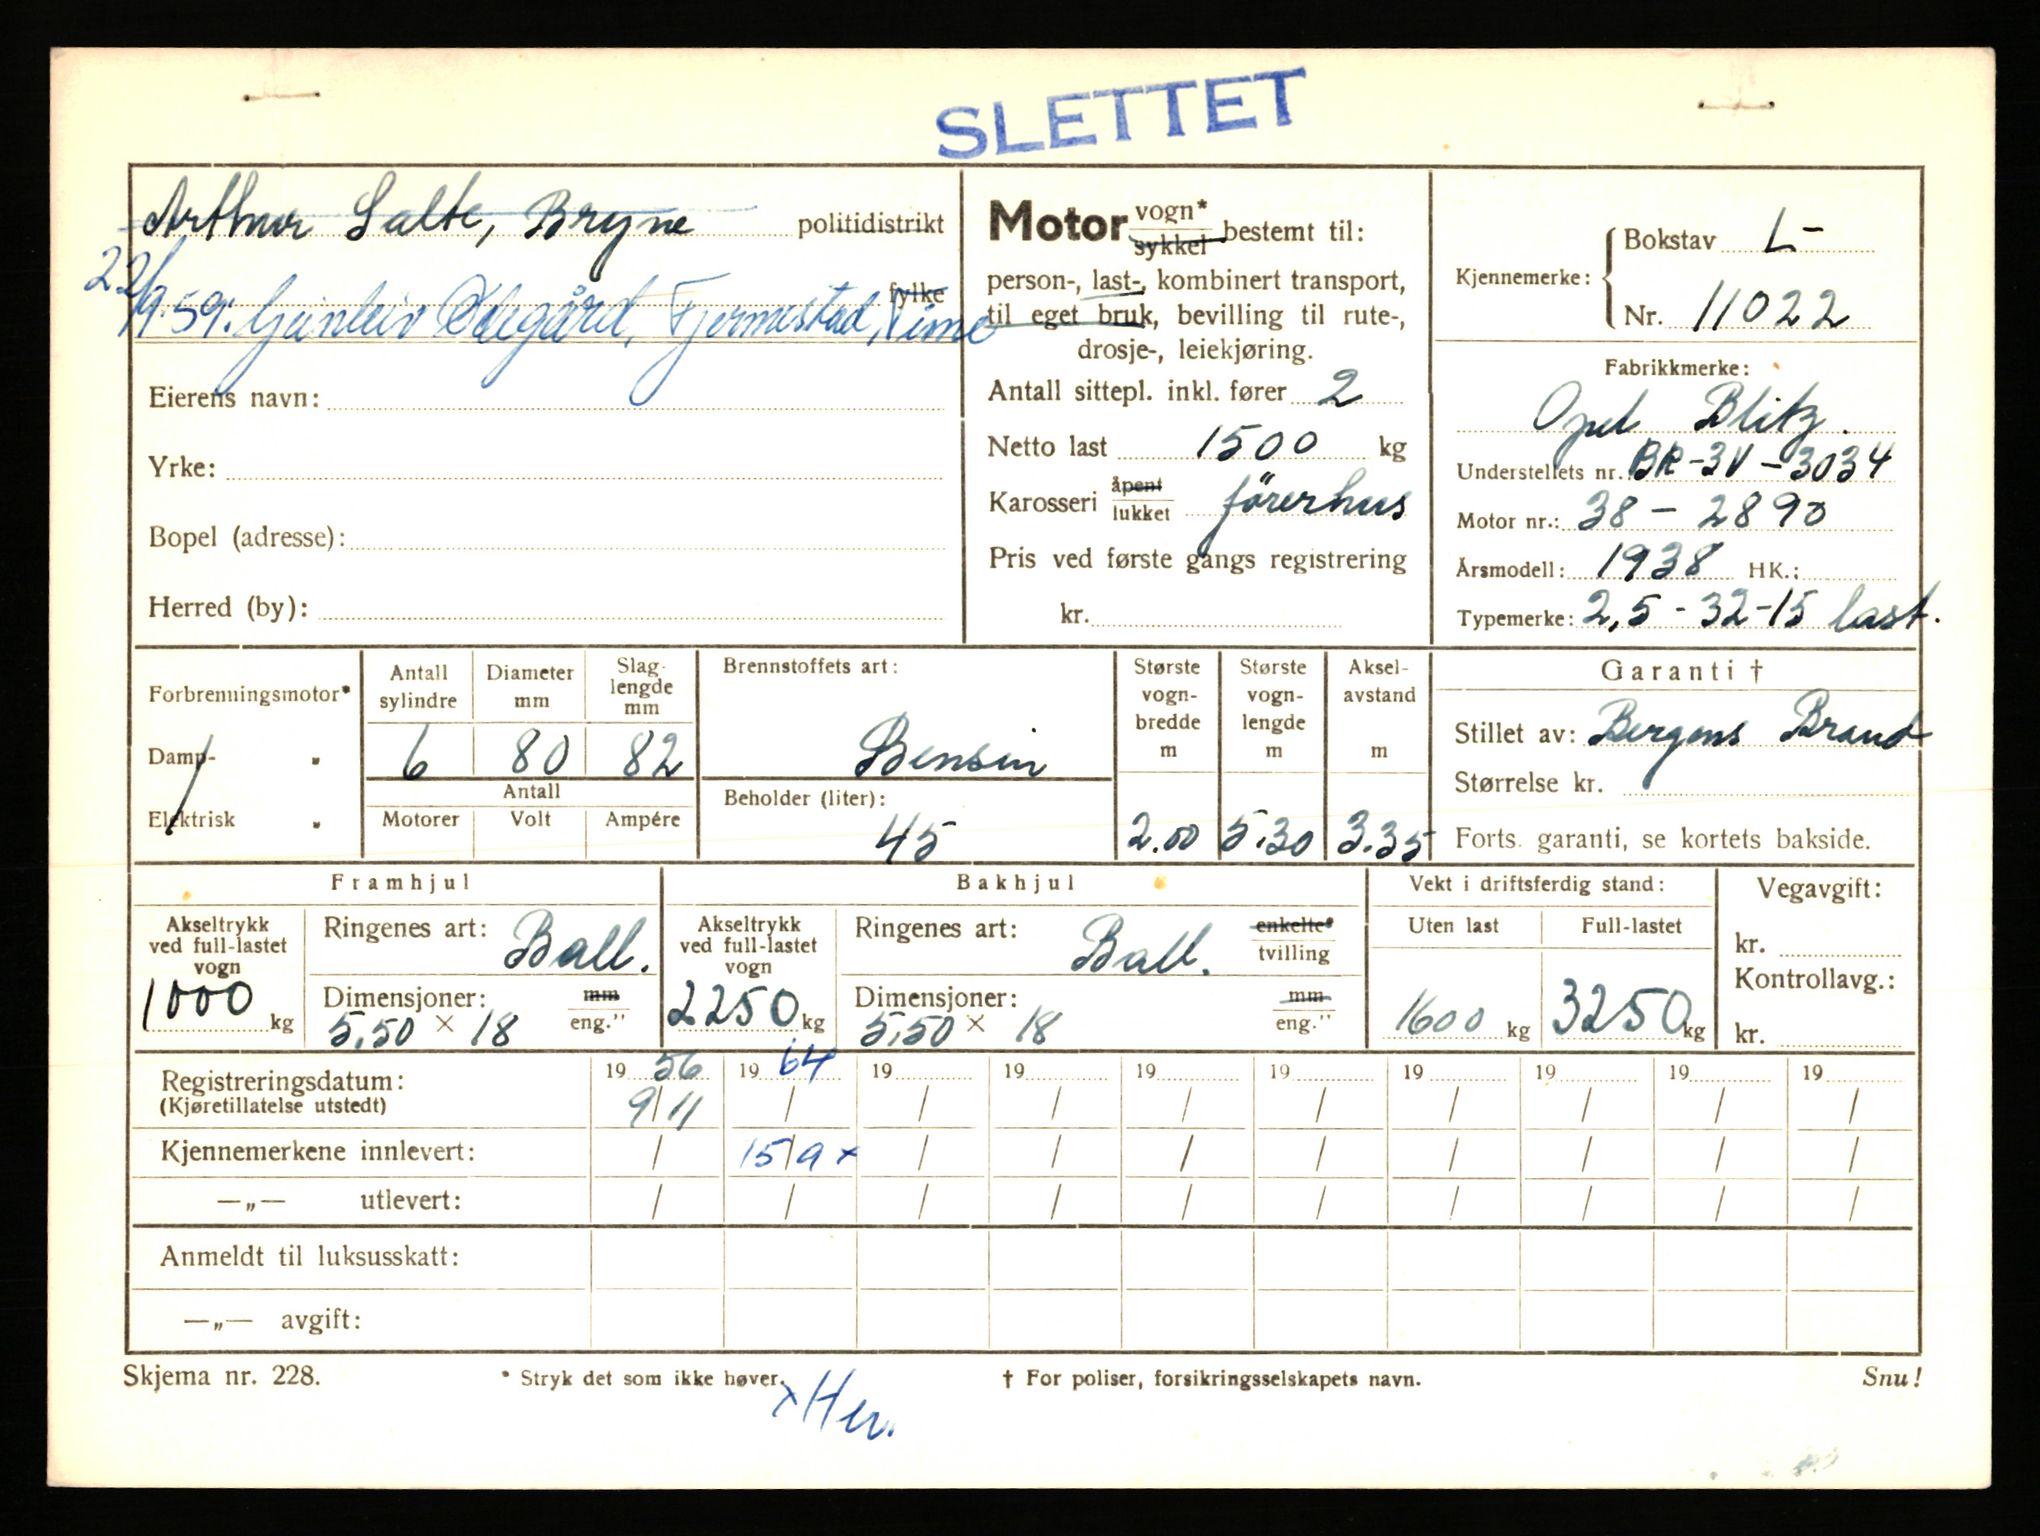 SLETTET
Arthur Salte, Bryne politidistrikt
22/9.59. Ødegård, Fjermestad, Time fylke
Eierens navn:
Yrke:
Bopel (adresse):
Herred (by):
Motor vogn* sykkel bestemt til:
person-, last-, kombinert transport,
til eget bruk, bevilling til rute-,
drosje-, leiekjøring.
Antall sittepl. inkl. fører 2
Netto last 1500 kg
Karosseri åpent lukket förerhus
Pris ved første gangs registrering
kr.
Kjennemerke: { Bokstav L-
Nr. 11022
Fabrikkmerke:
Opel Blitz.
Understellets nr. BR-3V-3034
Motor nr.: 38 - 2890
Årsmodell: 1938 HK.:
Typemerke: 2,5-32-15 last.
Forbrenningsmotor*
Damp- „
Elektrisk „
Antall sylindre Diameter mm Slaglengde mm
6 80 82
Antall
Motorer Volt Ampére
Brennstoffets art:
Bensin
Beholder (liter):
45
Største vognbredde m Største vognlengde m Akselavstand m
2.00 5.30 3.35
Garanti †
Stillet av: Bergens Brand
Størrelse kr.
Forts. garanti, se kortets bakside.
Framhjul
Akseltrykk ved full-lastet vogn
1000 kg
Ringenes art: Ball.
Dimensjoner: mm
5,50 x 18 eng."
Bakhjul
Akseltrykk ved full-lastet vogn
2250 kg
Ringenes art: Ball. enkelte* tvilling
Dimensjoner: mm
5,50 x 18 eng."
Vekt i driftsferdig stand:
Uten last Full-lastet
1600 kg 3250 kg
Vegavgift:
kr.
Kontrollavg.:
kr.
19 56 19 64 19 19 19 19 19 19 19 19
Registreringsdatum: 9/11 / / / / / / / / /
(Kjøretillatelse utstedt)
Kjennemerkene innlevert: / 15/9 x / / / / / / / /
—„— utlevert: / / / / / / / / / /
Anmeldt til luksusskatt:
—„— avgift:
Skjema nr. 228. * Stryk det som ikke høver. † For poliser, forsikringsselskapets navn. Snu!